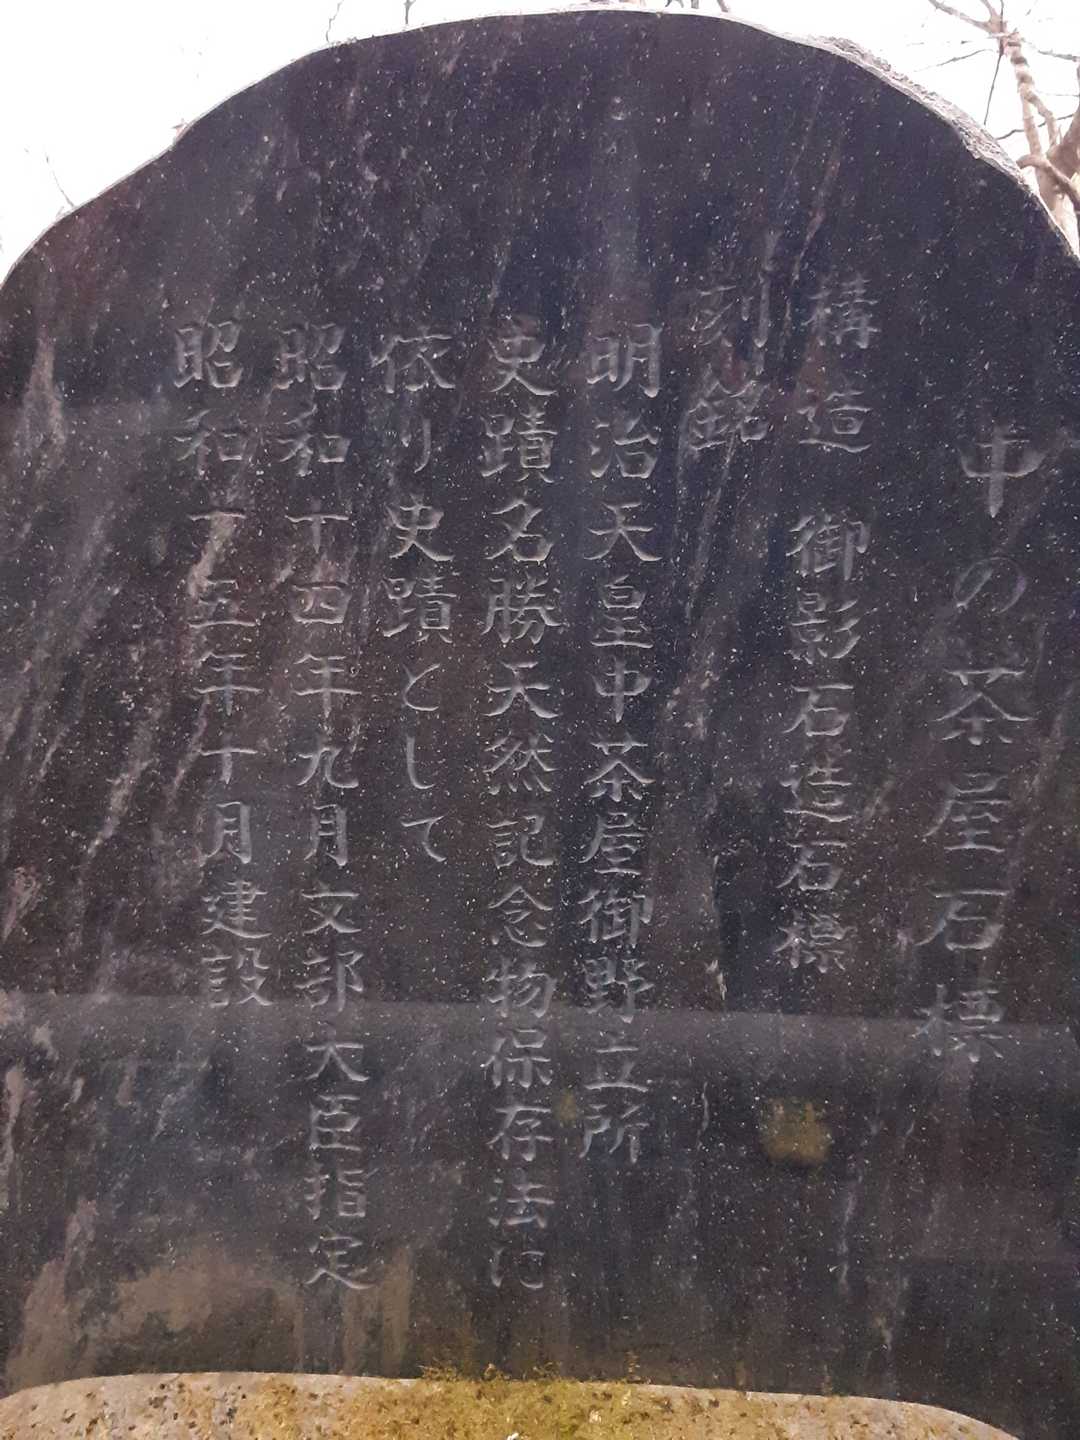 中の茶屋石標
構造 御影石造石標
刻銘
明治天皇中茶屋御野立所
史蹟名勝天然記念物保存法に
依り史蹟として
昭和十四年九月文部大臣指定
昭和十五年十月建設